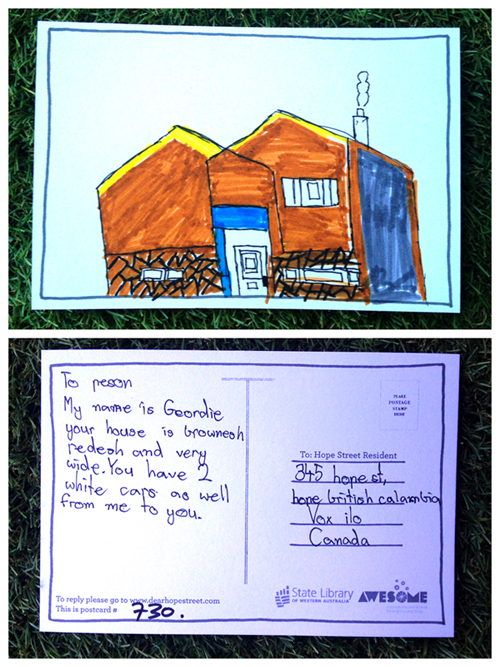 To peson
My name is Geordie
your house is brownesh
redesh and very
wide. You have 2
white cars as well
from me to you.
To reply please go to www.dearhopestreet.com
This is postcard # 730.
PLACE
POSTAGE
STAMP
HERE
To: Hope Street Resident
345 hope st,
hope british calambia
Vox ilo
Canada
State Library
OF WESTERN AUSTRALIA
AWESOME